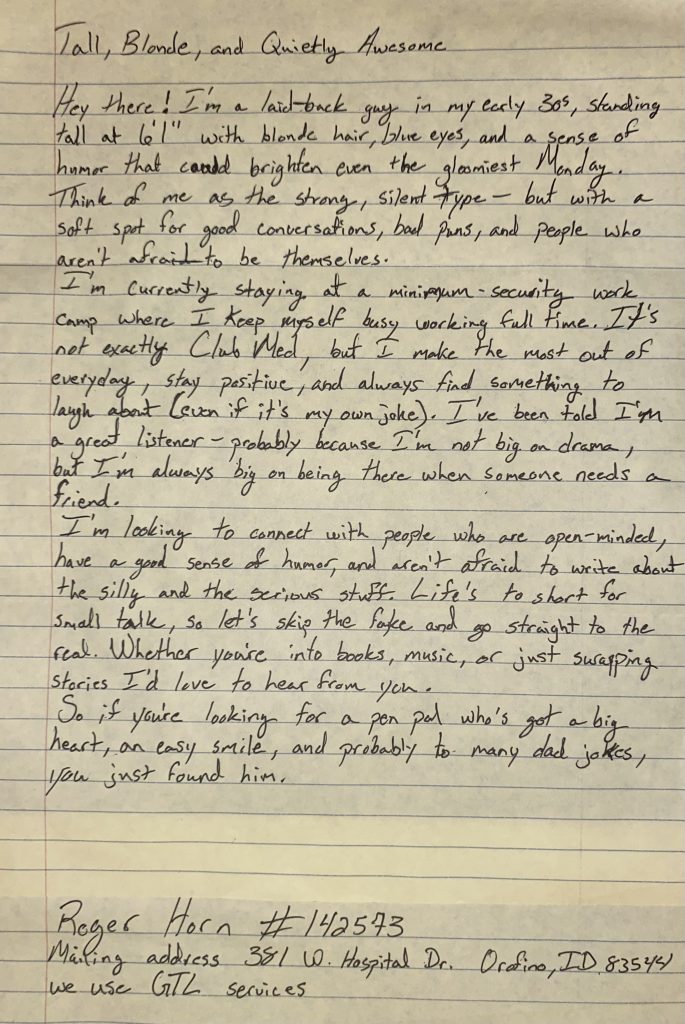 Tall, Blonde, and Quietly Awesome
Hey there! I'm a laid-back guy in my early 30s, standing
tall at 6'1" with blonde hair, blue eyes, and a sense of
humor that could brighten even the gloomiest Monday.
Think of me as the strong, silent type – but with a
soft spot for good conversations, bad puns, and people who
aren't afraid to be themselves.
I'm currently staying at a minimum-security work
camp where I keep myself busy working full time. It's
not exactly Club Med, but I make the most out of
everyday, stay positive, and always find something to
laugh about (even if it's my own joke). I've been told I'm
a great listener – probably because I'm not big on drama,
but I'm always big on being there when someone needs a
friend.
I'm looking to connect with people who are open-minded,
have a good sense of humor, and aren't afraid to write about
the silly and the serious stuff. Life's to short for
small talk, so let's skip the fake and go straight to the
real. Whether you're into books, music, or just swapping
stories I'd love to hear from you.
So if you're looking for a pen pal who's got a big
heart, an easy smile, and probably to many dad jokes,
you just found him.
Roger Horn #142573
Mailing address 381 W. Hospital Dr. Orofino, ID 83544
we use GTL services